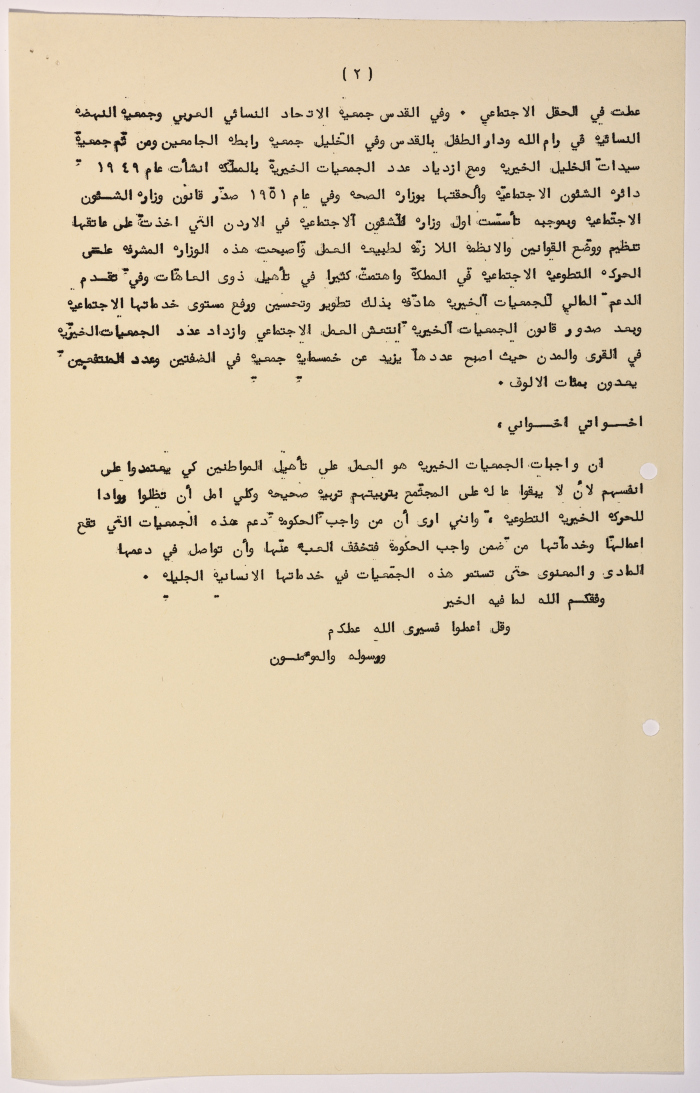 ( ٢ )
عملت في الحقل الاجتماعي ٠ وفي القدس جمعية الاتحاد النسائي العربي وجمعية النهضه
النسائيه في رام الله ودار الطفل بالقدس وفي الخليل جمعيه رابطه الجامعين ومن ثم جمعية
سيدات الخليل الخيريه ومع ازدياد عدد الجمعيات الخيرية بالمملكه انشأت عام ١٩٤٩
دائره الشئون الاجتماعيه والحقتها بوزاره الصحه وفي عام ١٩٥١ صدر قانون وزاره الشئون
الاجتماعيه وبموجبه تأسست اول وزاره للشئون الاجتماعيه في الاردن التي اخذت على عاتقها
تنظيم ووضع القوانين والانظمه اللازمه لطبيعه العمل واصبحت هذه الوزاره المشرفه على
الحركه التطوعيه الاجتماعيه في المملكة واهتمت كثيرا في تأهيل ذوى العاهات وفي تقدم
الدعم المالي للجمعيات الخيريه هادفه بذلك تطوير وتحسين ورفع مستوى خدماتها الاجتماعيه
وبعد صدور قانون الجمعيات الخيريه انتعش العمل الاجتماعي وازداد عدد الجمعيات الخيريه
في القرى والمدن حيث اصبح عددها يزيد عن خمسمايه جمعيه في الضفتين وعدد المنتفعين
يعدون بمئات الالوف ٠
اخــواتي اخــواني ،
ان واجبات الجمعيات الخيريه هو العمل على تأهيل المواطنين كي يعتمدوا على
انفسهم لأن لا يبقوا عاله على المجتمع بتربيتهم تربيه صحيحه وكلي امل أن تظلوا روادا
للحركه الخيريه التطوعيه ، وانني ارى أن من واجب الحكومة دعم هذه الجمعيات التي تقع
اعمالها وخدماتها من ضمن واجب الحكومة فتخفف العبء عنها وأن تواصل في دعمها
المادى والمعنوى حتى تستمر هذه الجمعيات في خدماتها الانسانية الجليله ٠
وفقكــم الله لما فيه الخير
وقل اعملوا فسيرى الله عملكم
ورسوله والموءمنــون